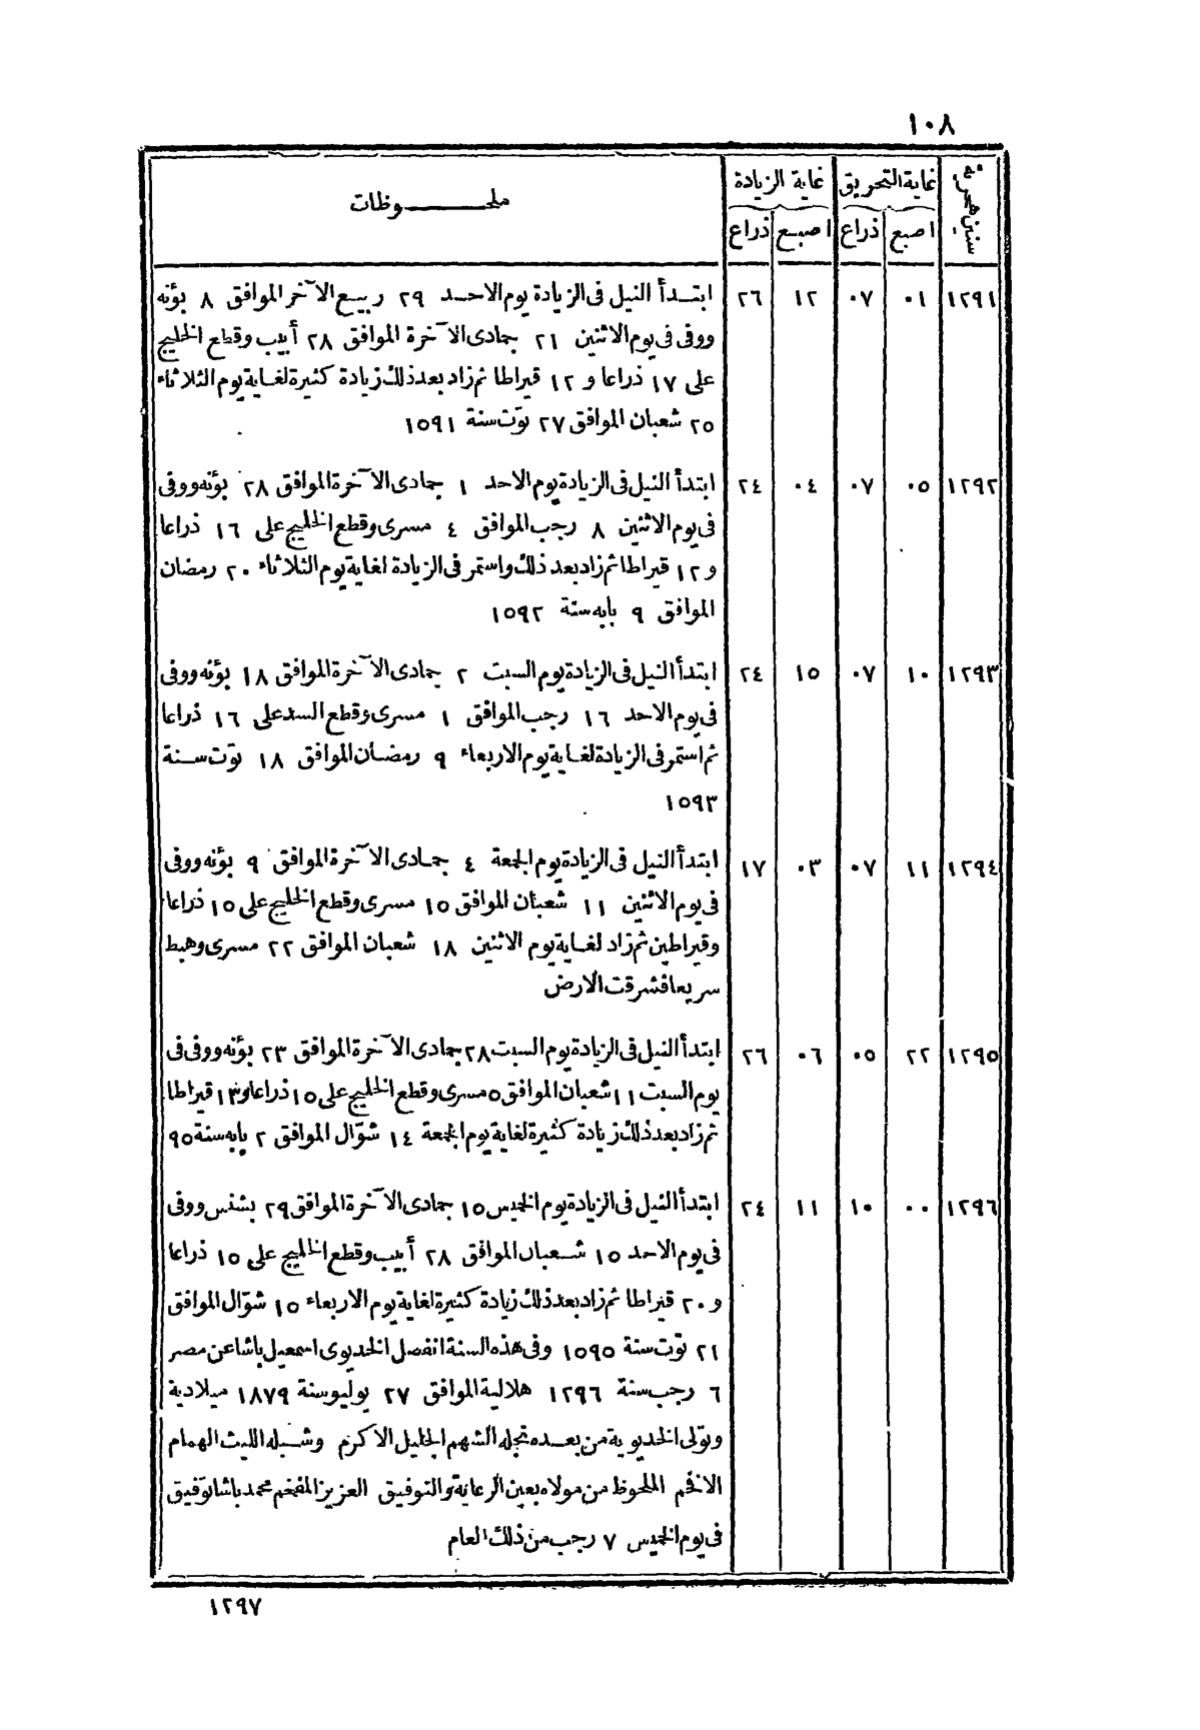 ١٠٨
سنين هجرية | غاية التحريق | غاية الزيادة | ملحـــوظات
اصبع | ذراع | اصبع | ذراع
١٢٩١ | ٠١ | ٠٧ | ١٢ | ٢٦ | ابتدأ النيل فى الزيادة يوم الاحد ٢٩ ربيع الآخر الموافق ٨ بؤنه
ووفى فى يوم الاثنين ٢١ جمادى الآخرة الموافق ٢٨ أبيب وقطع الخليج
على ١٧ ذراعا و ١٢ قيراطا ثم زاد بعد ذلك زيادة كثيرة لغاية يوم الثلاثاء
٢٥ شعبان الموافق ٢٧ توت سنة ١٥٩١
١٢٩٢ | ٠٥ | ٠٧ | ٠٤ | ٢٤ | ابتدأ النيل فى الزيادة يوم الاحد ١ جمادى الآخرة الموافق ٢٨ بؤنه ووفى
فى يوم الاثنين ٨ رجب الموافق ٤ مسرى وقطع الخليج على ١٦ ذراعا
و ١٢ قيراطا ثم زاد بعد ذلك واستمر فى الزيادة لغاية يوم الثلاثاء ٢٠ رمضان
الموافق ٩ بابه سنة ١٥٩٢
١٢٩٣ | ١٠ | ٠٧ | ١٥ | ٢٤ | ابتدأ النيل فى الزيادة يوم السبت ٢ جمادى الآخرة الموافق ١٨ بؤنه ووفى
فى يوم الاحد ١٦ رجب الموافق ١ مسرى وقطع السد على ١٦ ذراعا
ثم استمر فى الزيادة لغاية يوم الاربعاء ٩ رمضان الموافق ١٨ توت سنة
١٥٩٣
١٢٩٤ | ١١ | ٠٧ | ٠٣ | ١٧ | ابتدأ النيل فى الزيادة يوم الجمعة ٤ جمادى الآخرة الموافق ٩ بؤنه ووفى
فى يوم الاثنين ١١ شعبان الموافق ١٥ مسرى وقطع الخليج على ١٥ ذراعا
وقيراطين ثم زاد لغاية يوم الاثنين ١٨ شعبان الموافق ٢٢ مسرى وهبط
سريعا فشرقت الارض
١٢٩٥ | ٢٢ | ٠٥ | ٠٦ | ٢٦ | ابتدأ النيل فى الزيادة يوم السبت ٢٨ جمادى الآخرة الموافق ٢٣ بؤنه ووفى فى
يوم السبت ١١ شعبان الموافق ٥ مسرى وقطع الخليج على ١٥ ذراعا و١٣ قيراطا
ثم زاد بعد ذلك زيادة كثيرة لغاية يوم الجمعة ١٤ شوّال الموافق ٢ بابه سنة ٩٥
١٢٩٦ | ٠٠ | ١٠ | ١١ | ٢٤ | ابتدأ النيل فى الزيادة يوم الخميس ١٥ جمادى الآخرة الموافق ٢٩ بشنس ووفى
فى يوم الاحد ١٥ شعبان الموافق ٢٨ أبيب وقطع الخليج على ١٥ ذراعا
و ٢٠ قيراطا ثم زاد بعد ذلك زيادة كثيرة لغاية يوم الاربعاء ١٥ شوّال الموافق
٢١ توت سنة ١٥٩٥ وفى هذه السنة انفصل الخديوى اسمعيل باشا عن مصر
٦ رجب سنة ١٢٩٦ هلالية الموافق ٢٧ يوليو سنة ١٨٧٩ ميلادية
وتولى الخديوية من بعده نجله الشهم الجليل الاكرم وشبله الليث الهمام
الافخم الملحوظ من مولاه بعين الرعاية والتوفيق العزيز المفخم محمد باشا توفيق
فى يوم الخميس ٧ رجب من ذلك العام
١٢٩٧